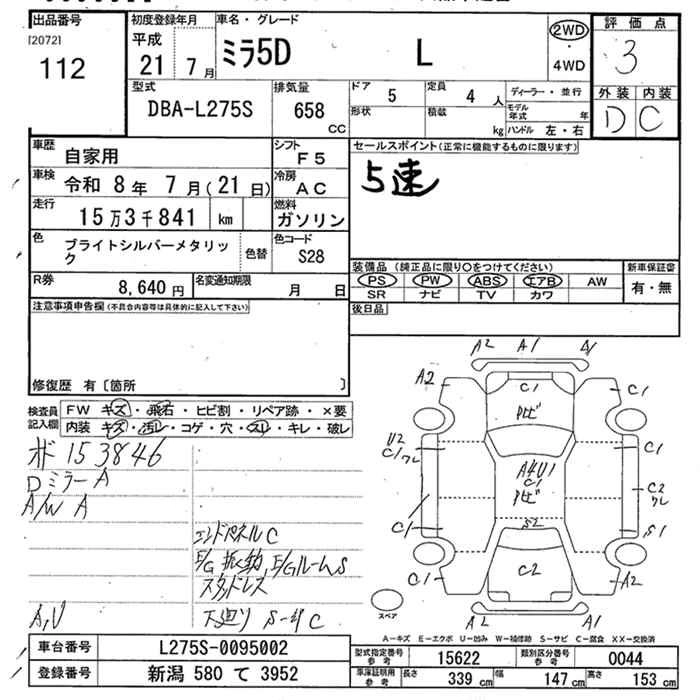 出品番号
[2072]
112
初度登録年月
平成
21 7月
車名・グレード
ミラ5D L
2WD
・
4WD
評価点
3
外装 内装
D C
型式
DBA-L275S
排気量
658
CC
ドア 5
定員 4 人
形状
積載 kg
ディーラー・並行
モデル年式 年
ハンドル 左・右
車歴 自家用
シフト F5
車検 令和 8年 7月(21日)
冷房 AC
走行 15万3千841 km
燃料 ガソリン
色 ブライトシルバーメタリック
色替
色コード S28
R券 8,640円
名変通知期限 月 日
セールスポイント(正常に機能するものに限ります)
5速
装備品(純正品に限り○をつけてください)
PS PW ABS エアB AW
SR ナビ TV カワ
新車保証書
有・無
後日品
注意事項申告欄(不具合内容等は具体的に記入して下さい)
修復歴 有〔箇所 〕
検査員記入欄
FW キズ・飛石・ヒビ割・リペア跡・×要
内装 キズ・汚レ・コゲ・穴・スリ・キレ・破レ
153846
Dミラー A
A/W A
エンドパネル C
E/Gルーム S
スタッドレス
A,U
下廻り S-サビ C
A2 A1
A2 C1 C1
U2
C1 C1
A4 U1
C1
C2
C1 S2 S1
C1 C2 A2
A2 A1
スペア
A-キズ E-エクボ U-凹み W-補修跡 S-サビ C-腐食 XX-交換済
車台番号 L275S-0095002
登録番号 新潟 580 て 3952
型式指定番号 参考 15622
類別区分番号 参考 0044
車庫証明用 参考 長さ 339 cm 幅 147 cm 高さ 153 cm